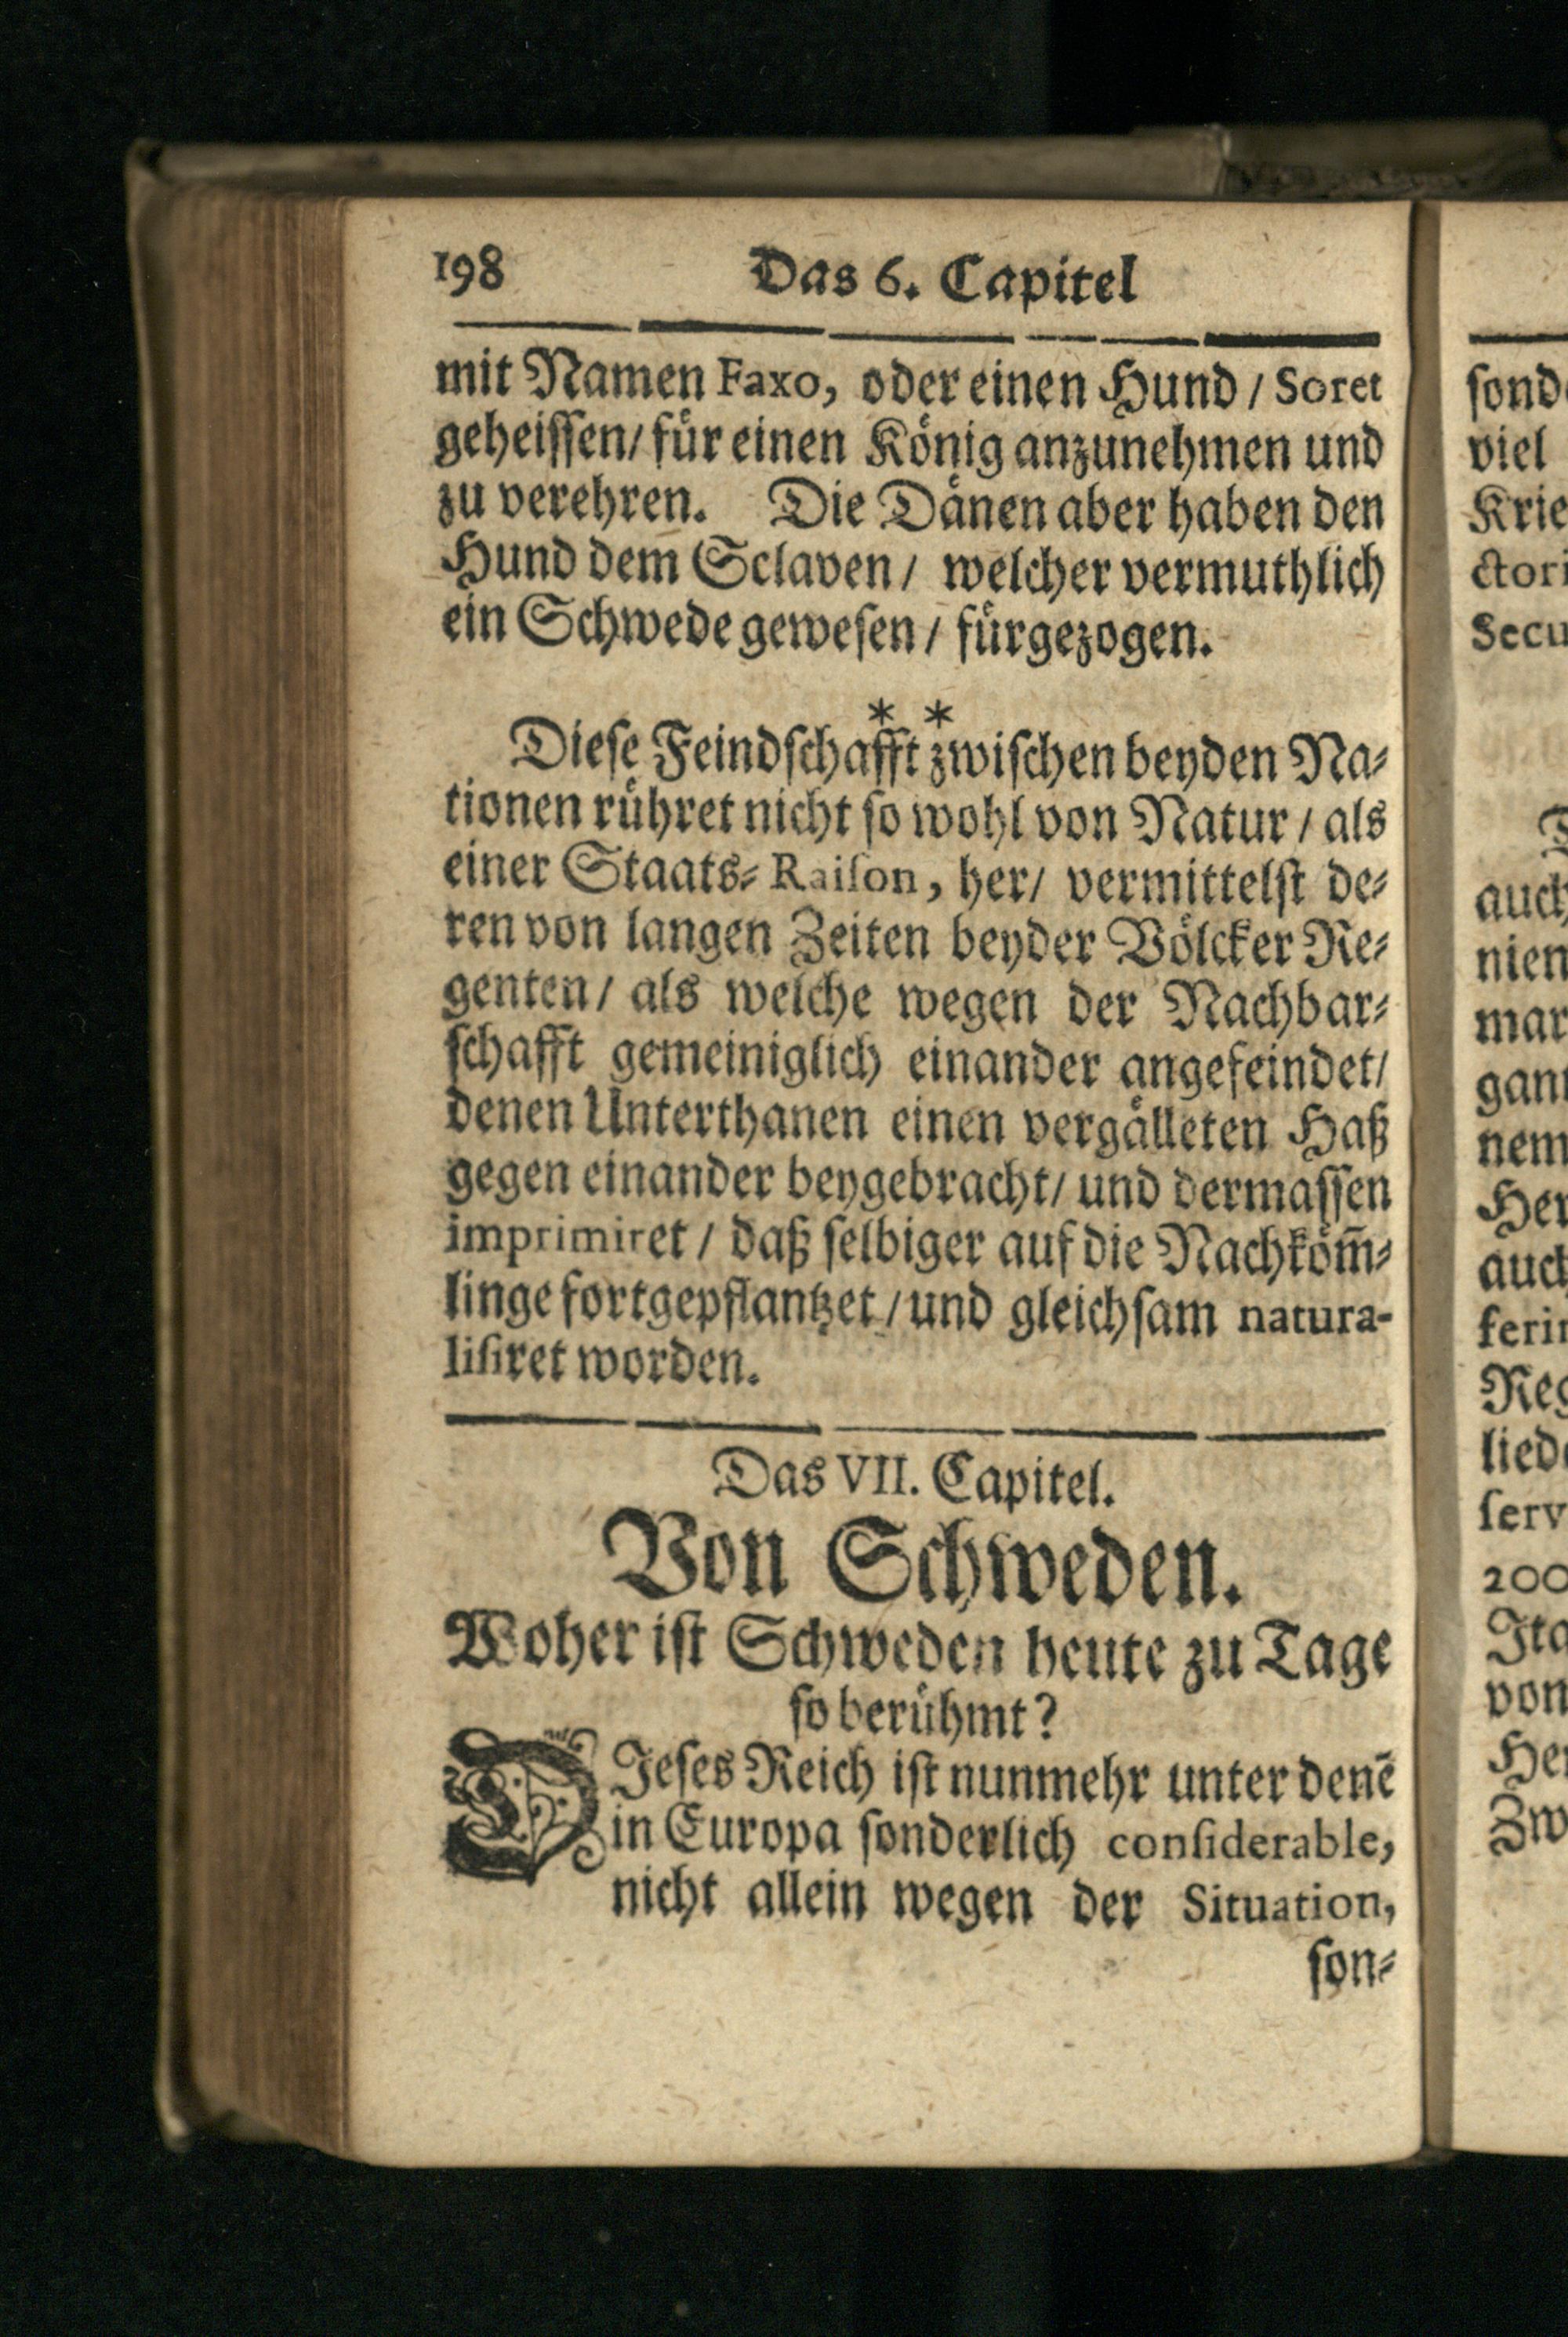 198 Das 6. Capitel
mit Namen Faxo, oder einen Hund / Soret
geheiſſen/ fuͤr einen Koͤnig anzunehmen und
zu verehren. Die Daͤnen aber haben den
Hund dem Sclaven / welcher vermuthlich
ein Schwede geweſen / fuͤrgezogen.
* *
Dieſe Feindſchafft zwiſchen beyden Na⸗
tionen ruͤhret nicht ſo wohl von Natur / als
einer Staats⸗Raiſon, her/ vermittelſt de⸗
ren von langen Zeiten beyder Voͤlcker Re⸗
genten / als welche wegen der Nachbar⸗
ſchafft gemeiniglich einander angefeindet/
denen Unterthanen einen vergaͤlleten Haß
gegen einander beygebracht/ und dermaſſen
imprimiret / daß ſelbiger auf die Nachkoͤm̃⸗
linge fortgepflantzet / und gleichſam natura-
liſiret worden.
Das VII. Capitel.
Von Schweden.
Woher iſt Schweden heute zu Tage
ſo beruͤhmt?
DJeſes Reich iſt nunmehr unter denē
in Europa ſonderlich conſiderable,
nicht allein wegen der Situation,
ſon⸗
ſond
viel
Krie
ctori
Secu
auch
nien
mar
gant
nem
Her
auch
ferin
Reg
lied
ſerv
200
Ita
von
Her
Zw